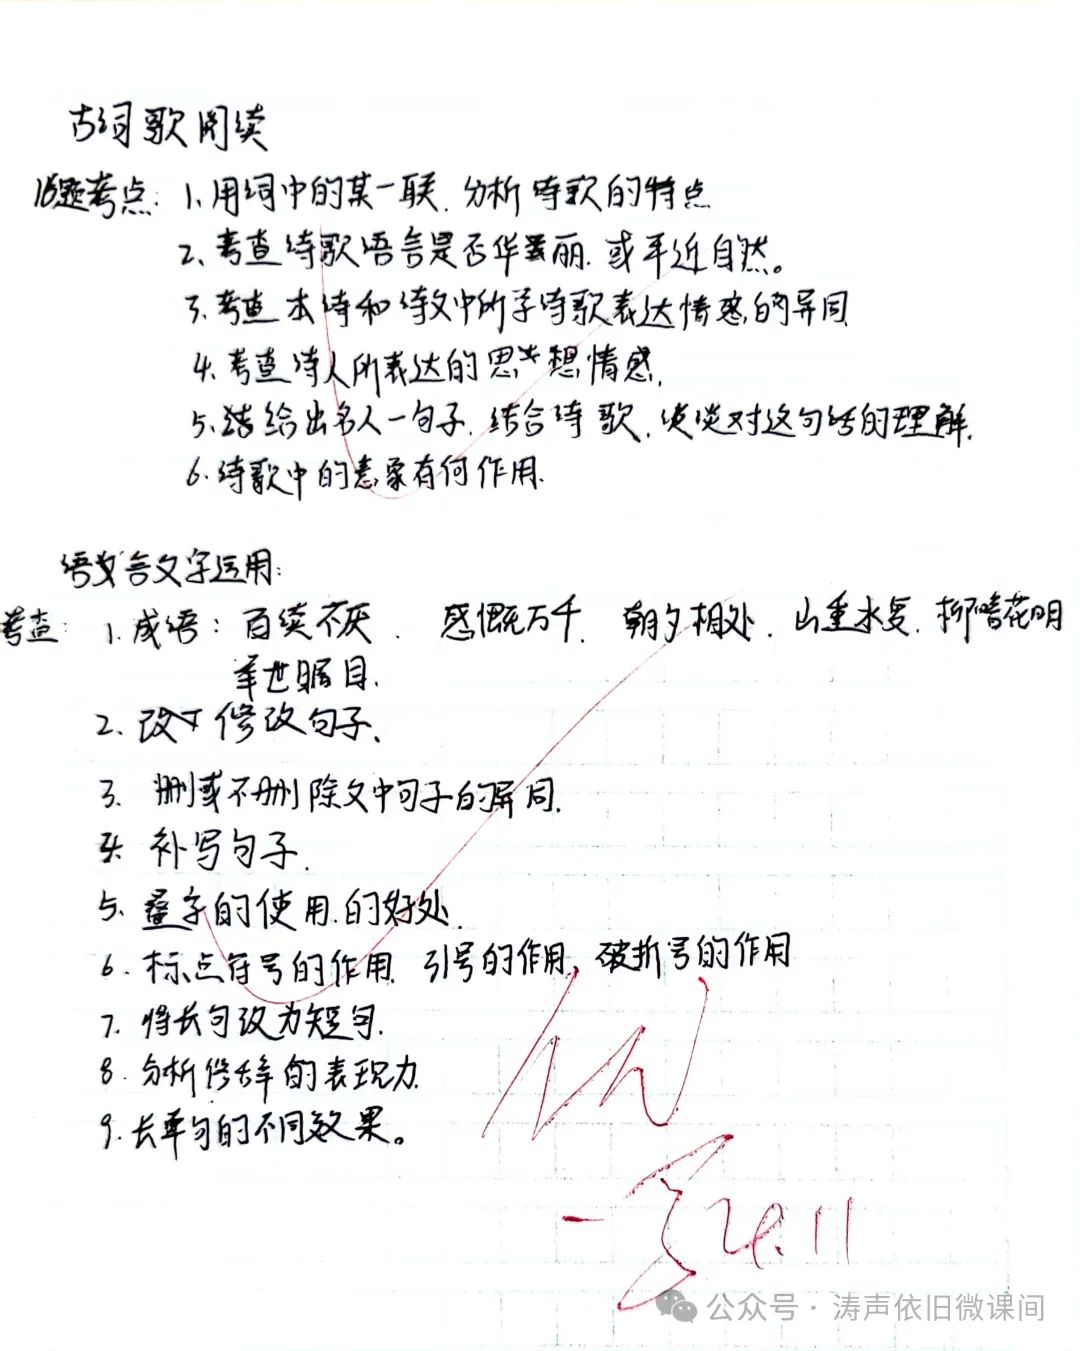 古词歌阅读
16题考点: 1.用词中的某一联.分析诗歌的特点
2、考查诗歌语言是否华丽.或平近自然。
3.考查本诗和诗文中所予诗歌表达情感的异同
4.考查诗人所表达的思想情感.
5.给出名人一句子.结合诗歌.谈谈对这句话的理解.
6.诗歌中的意象有何作用.
语言文字运用:
考查: 1.成语: 百读不厌. 感慨万千. 朝夕相处. 山重水复. 柳暗花明
举世瞩目.
2.修改句子、
3. 删或不删除文中句子的异同.
4. 补写句子.
5. 叠字的使用.的好处.
6.标点符号的作用. 引号的作用, 破折号的作用
7. 将长句改为短句.
8.分析修辞的表现力.
9.长单句的不同效果。
24.11
公众号·涛声依旧微课间